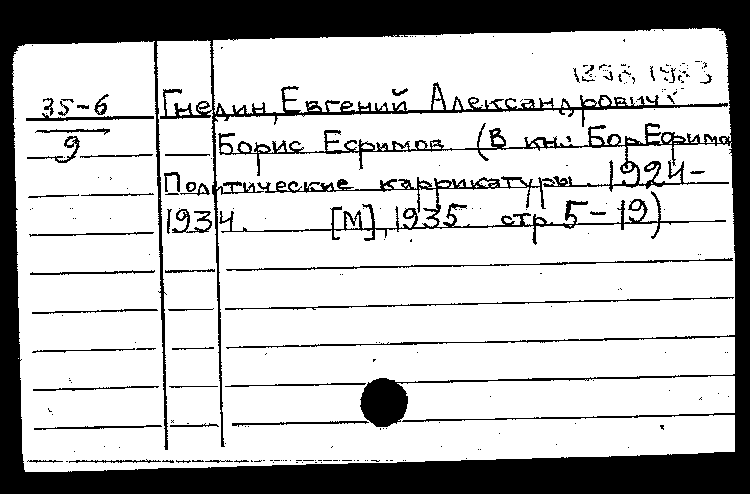 1898 1983
35-6
9
Гнедин, Евгений Александрович
Борис Ефимов. (В кн.: Бор. Ефимо
Политические каррикатуры. 1924-
1934. [М], 1935. стр. 5-19)